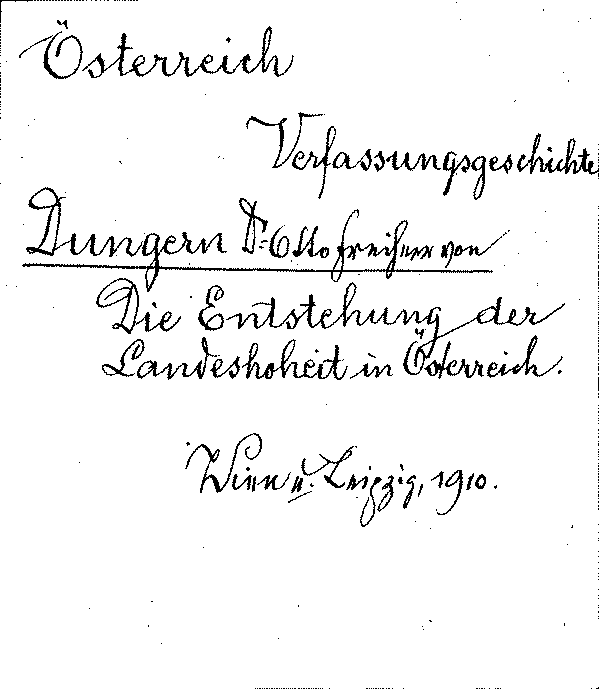 Österreich
Verfassungsgeschichte
Dungern Dr. Otto Freiherr von
Die Entstehung der
Landeshoheit in Österreich.
Wien u. Leipzig, 1910.